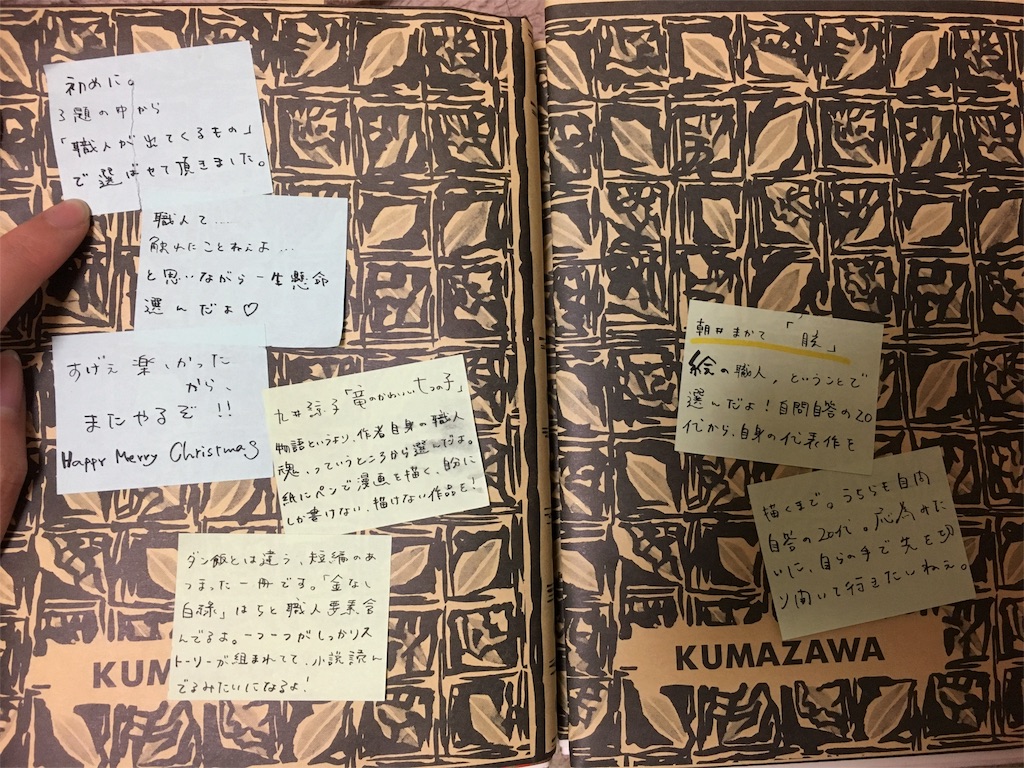 初めに。
3題の中から
「職人が出てくるもの」
で選ばせて頂きました。
職人て……
触れたことねぇよ…
と思いながら一生懸命
選んだよ♡
すげぇ楽しかった
から、
またやるぞ!!
Happy Merry Christmas
九井諒子「竜のかわいい七つの子」
物語というより、作者自身の職人
魂、っていうところから選んだよ。
紙にペンで漫画を描く、自分に
しか書けない、描けない作品を!
ダン飯とは違う、短編のあ
つまった一冊です。「金なし
白祿」はちと職人要素含
んでるよ。一つ一つがしっかりス
トーリーが組まれてて、小説読ん
でるみたいになるよ!
KUM
朝井まかて「眩」
絵の職人、ということで
選んだよ!自問自答の20
代から、自身の代表作を
描くまで。うちらも自問
自答の20代。応為みた
いに、自らの手で先を切
り開いて行きたいねぇ。
KUMAZAWA